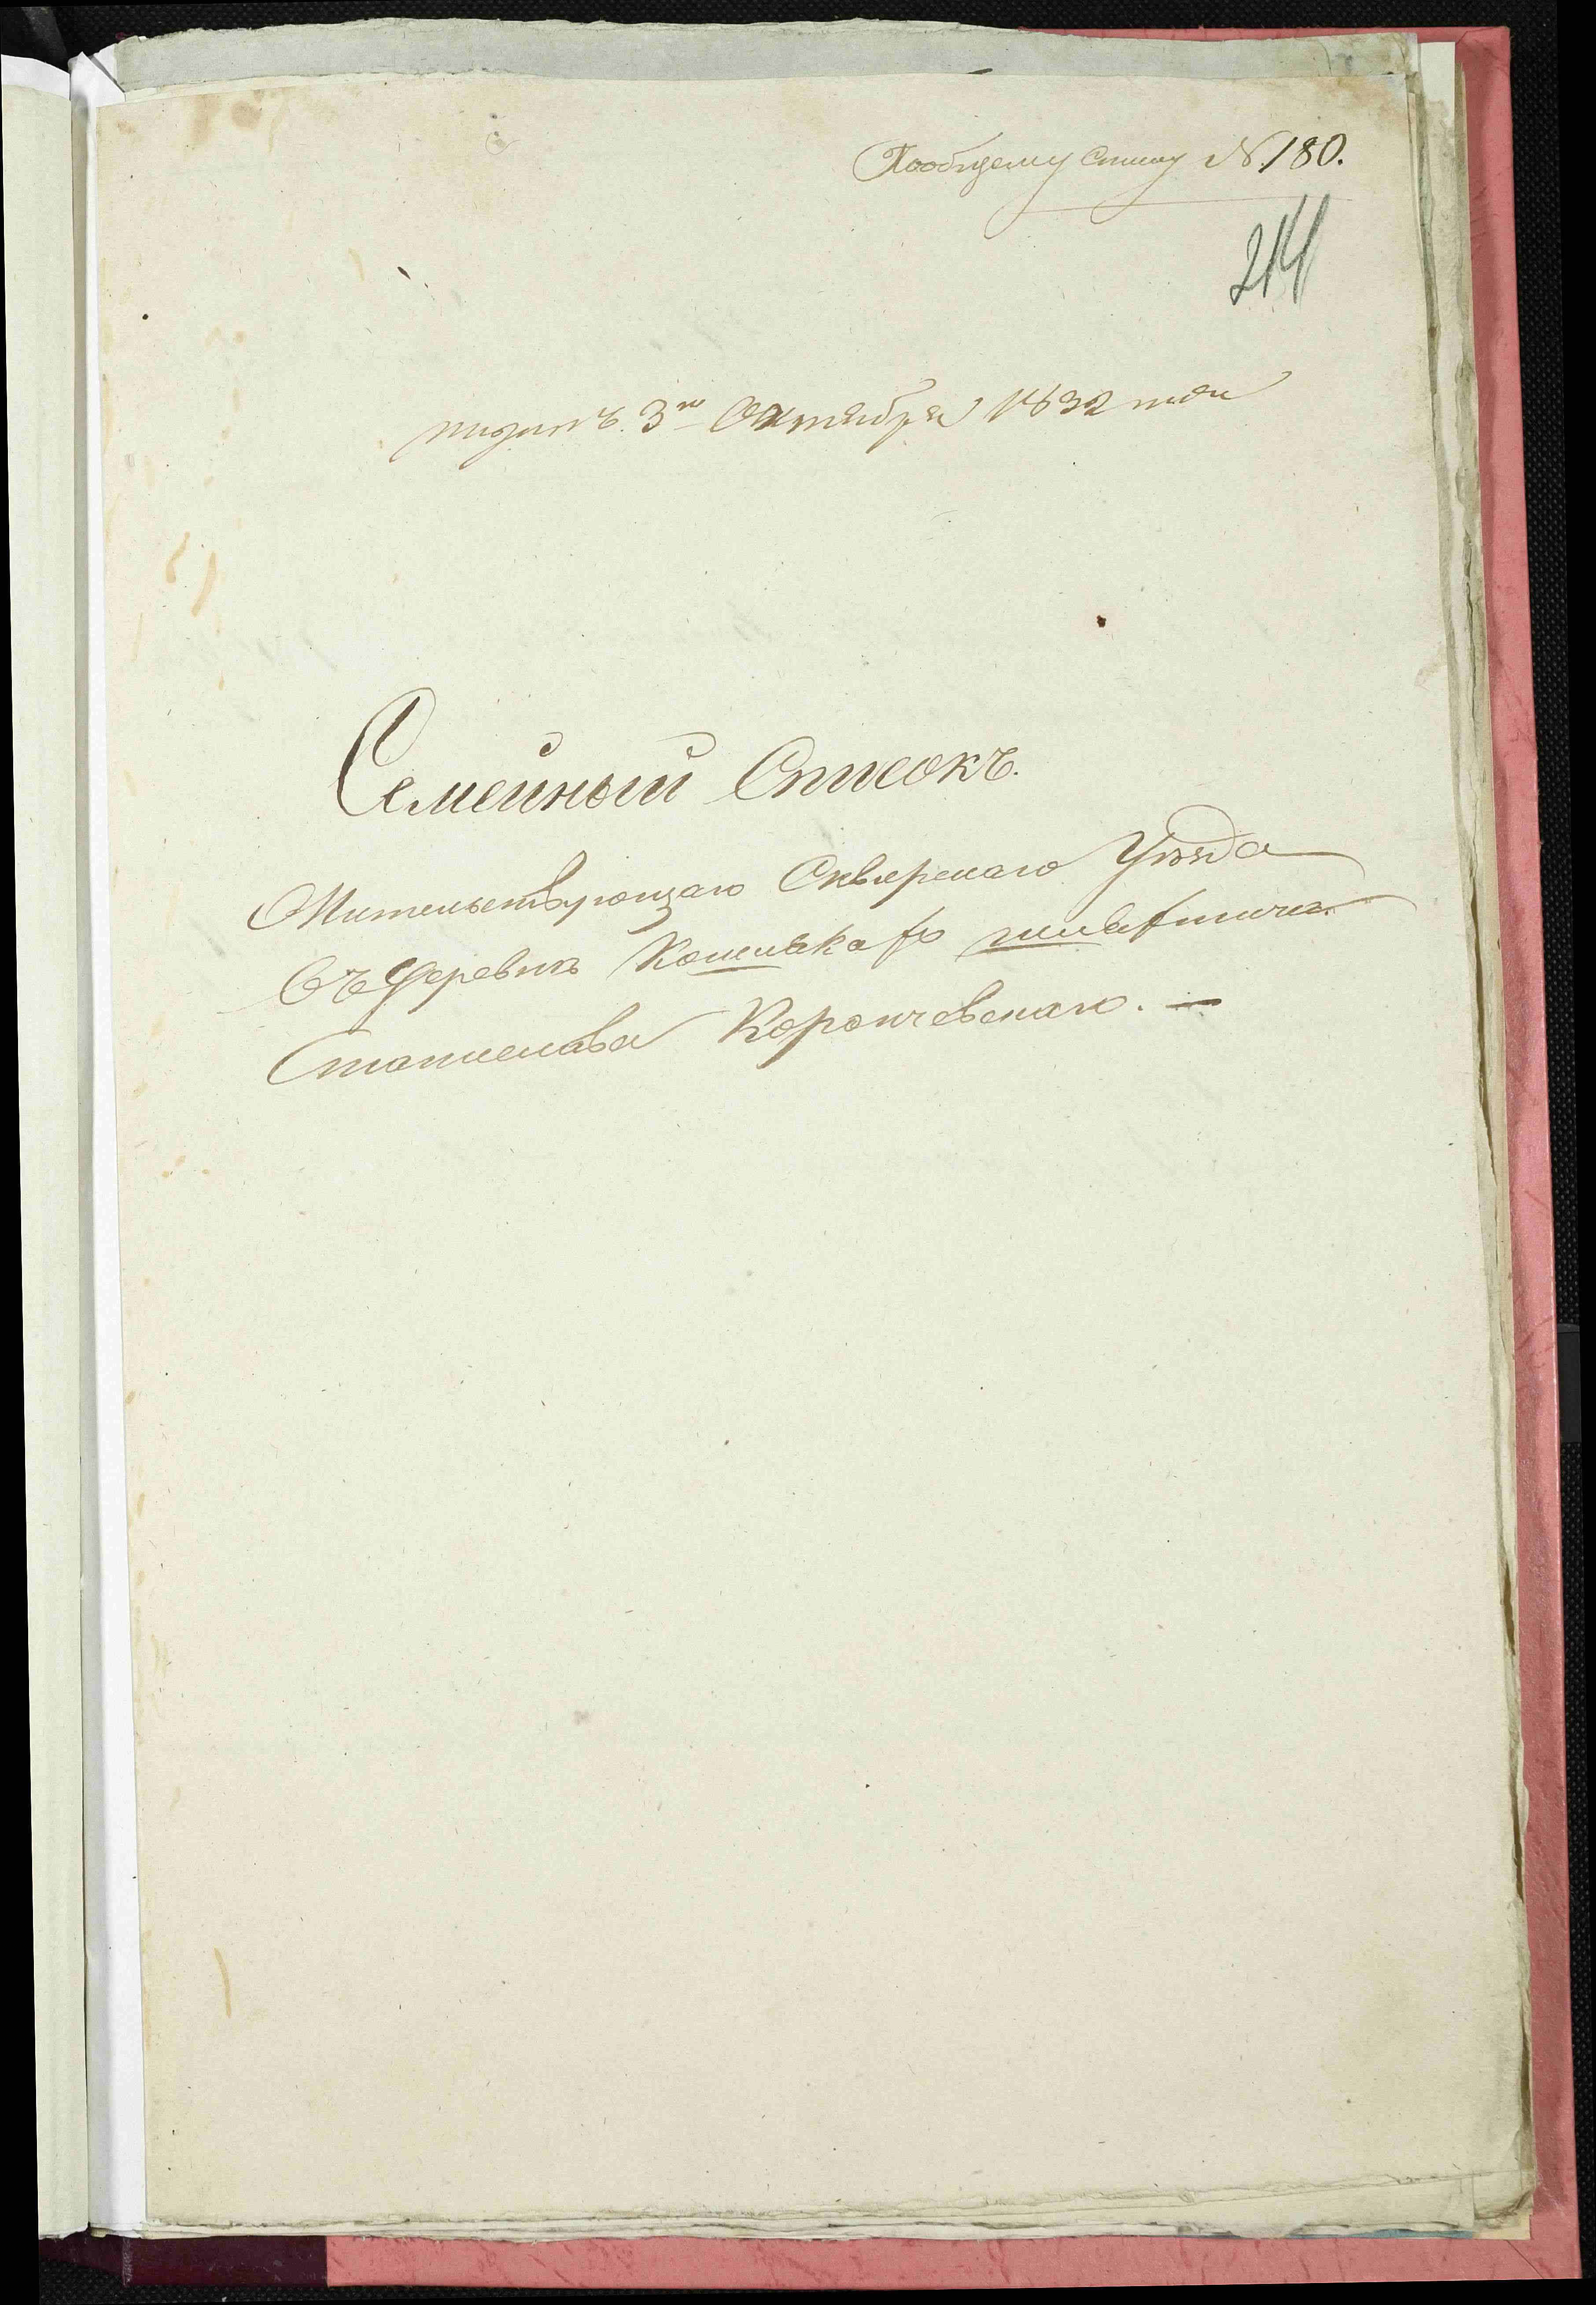 По общему списку №180.
214
подан. 3го Октября 1832 года
Семейный Списокъ.
Жительствующаго Сквирскаго Уезда
въ деревни шляхтича
Станислава Корончевскаго. —